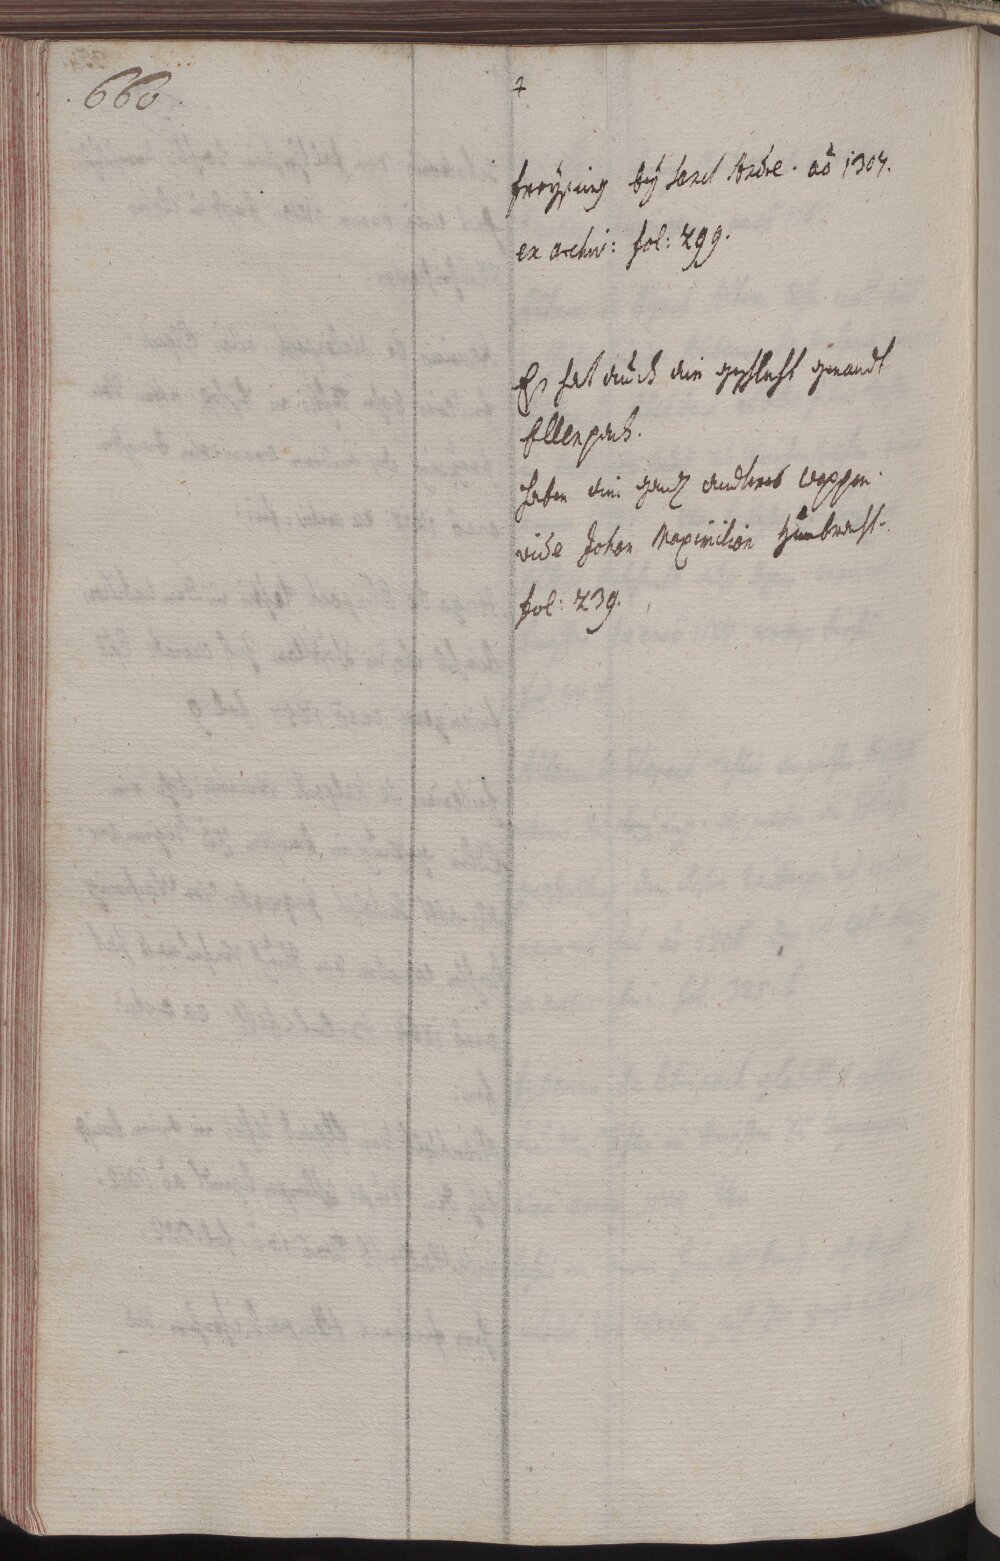 660
freysing bey sanct Andre. aõ 1307.
ex archiv: fol: 299.
Es hat auch ein geschlecht genandt
Ellenpach.
haben ein gantz anderes wappen.
vide Johan Maximilian Humbracht.
fol: 239.